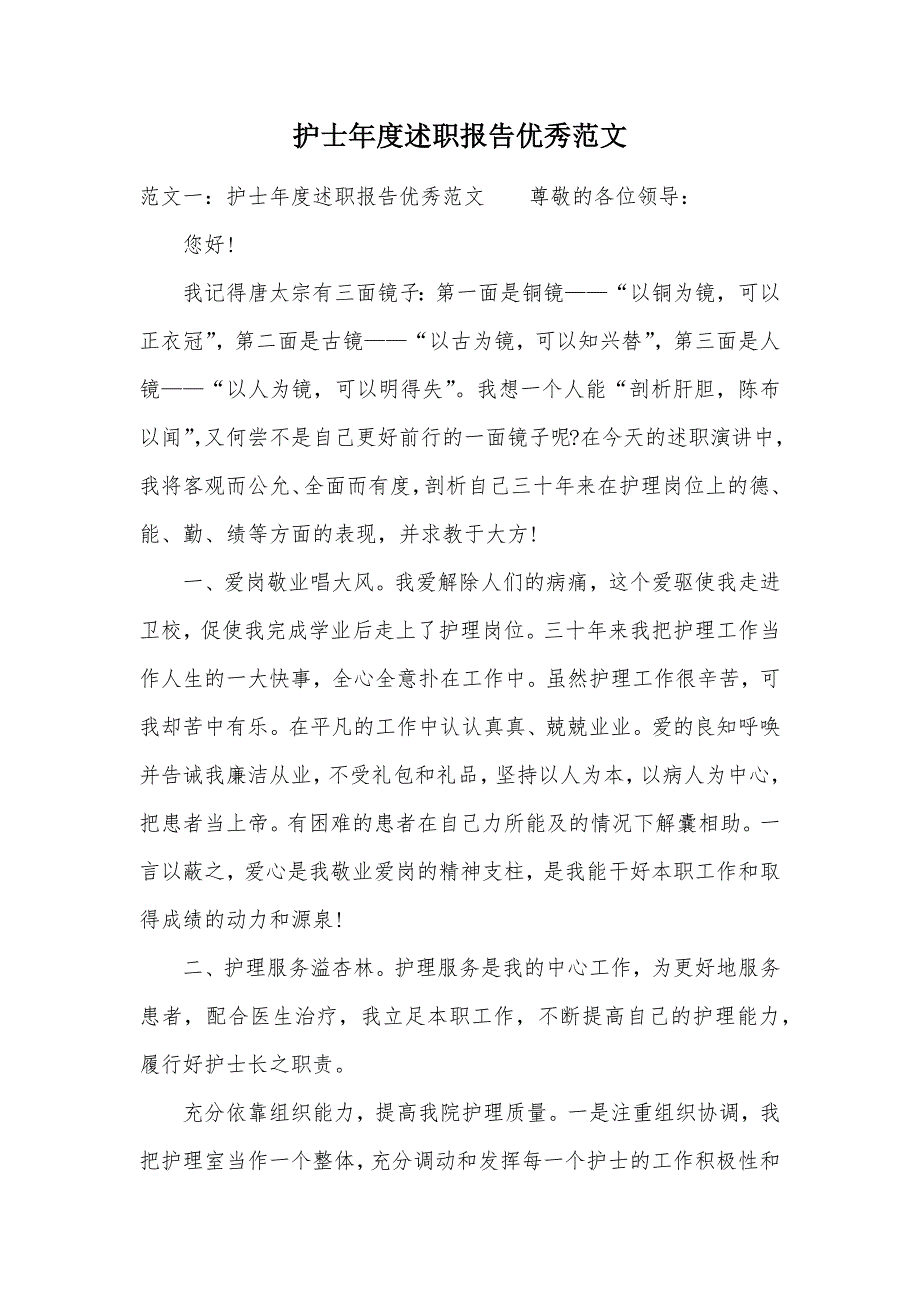 护士年度述职报告优秀范文
范文一：护士年度述职报告优秀范文　　尊敬的各位领导：
您好!
我记得唐太宗有三面镜子：第一面是铜镜——“以铜为镜，可以
正衣冠”，第二面是古镜——“以古为镜，可以知兴替”，第三面是人
镜——“以人为镜，可以明得失”。我想一个人能“剖析肝胆，陈布
以闻”，又何尝不是自己更好前行的一面镜子呢?在今天的述职演讲中，
我将客观而公允、全面而有度，剖析自己三十年来在护理岗位上的德、
能、勤、绩等方面的表现，并求教于大方!
一、爱岗敬业唱大风。我爱解除人们的病痛，这个爱驱使我走进
卫校，促使我完成学业后走上了护理岗位。三十年来我把护理工作当
作人生的一大快事，全心全意扑在工作中。虽然护理工作很辛苦，可
我却苦中有乐。在平凡的工作中认认真真、兢兢业业。爱的良知呼唤
并告诫我廉洁从业，不受礼包和礼品，坚持以人为本，以病人为中心，
把患者当上帝。有困难的患者在自己力所能及的情况下解囊相助。一
言以蔽之，爱心是我敬业爱岗的精神支柱，是我能干好本职工作和取
得成绩的动力和源泉!
二、护理服务溢杏林。护理服务是我的中心工作，为更好地服务
患者，配合医生治疗，我立足本职工作，不断提高自己的护理能力，
履行好护士长之职责。
充分依靠组织能力，提高我院护理质量。一是注重组织协调，我
把护理室当作一个整体，充分调动和发挥每一个护士的工作积极性和